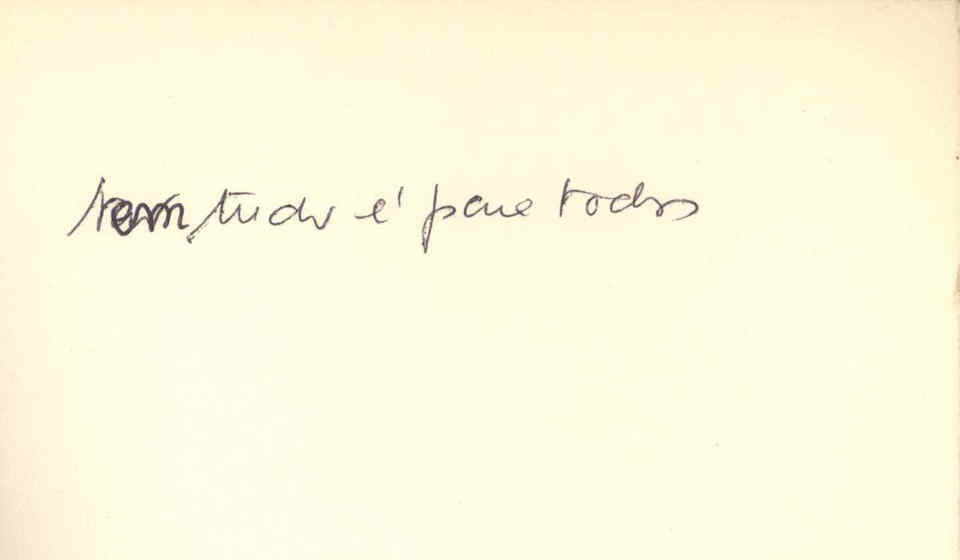 Nem tudo é para todos